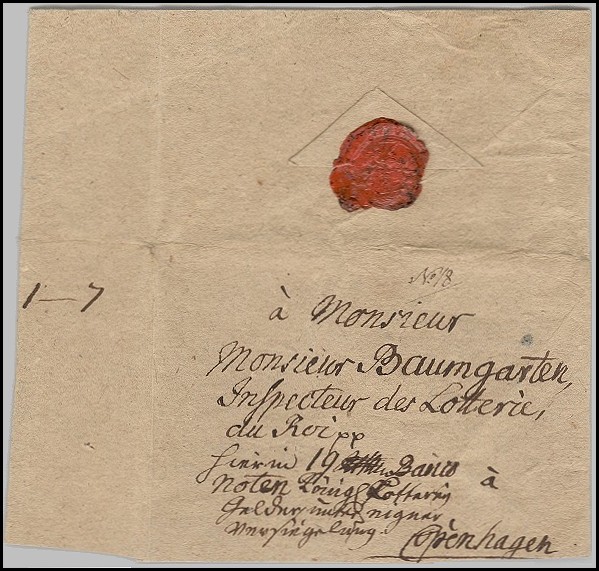 No 18
1 — 7
à Monsieur
Monsieur Baumgarten,
Inspecteur des Lotterie,
du Roi pp
hierin 19 Banco
Noten Königl Lotterie à
Gelder unter eigner
Versiegelung.
Copenhagen